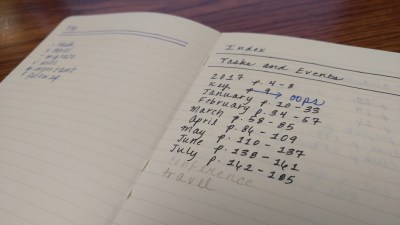 Key
important
Index
Tasks and Events
2017 p. 4 - 8
Key p. 9 → oops
January p. 10 - 33
February p. 34 - 57
March p. 58 - 85
April p. 86 - 109
May p. 110 - 137
June p. 138 - 141
July p. 142 - 185
conference
travel